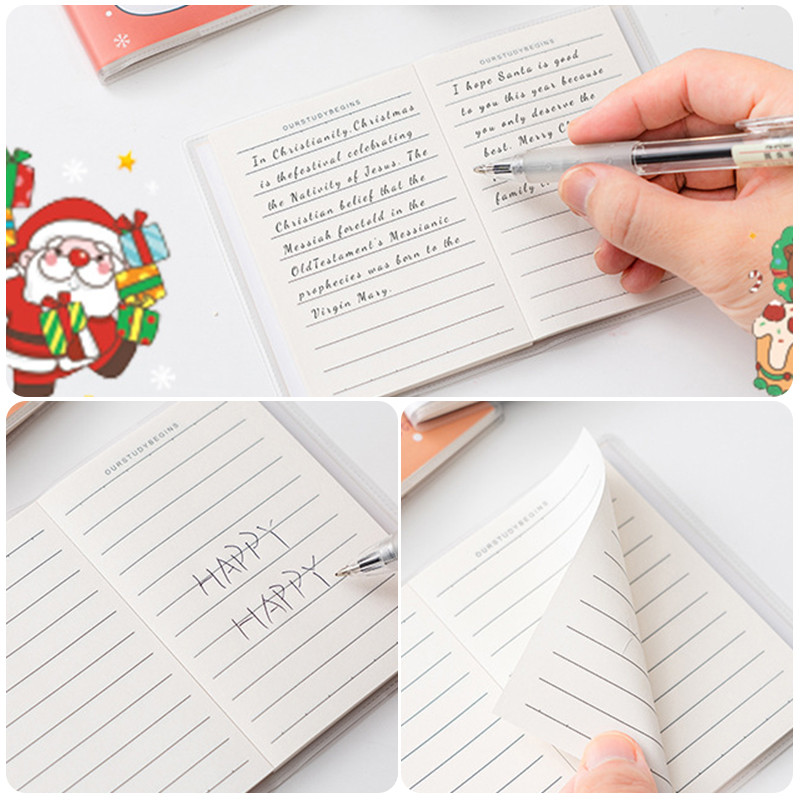 OURSTUDYBEGINS
In Christianity,Christmas
is thefestival celebrating
the Nativity of Jesus. The
Christian belief that the
Messiah foretold in the
OldTestament's Messianic
prophecies was born to the
Virgin Mary.
OURSTUDYBEGINS
I hope Santa is good
to you this year because
you only deserve the
best. Merry
family
OURSTUDYBEGINS
HAPPY
HAPPY
OURSTUDYBEGINS